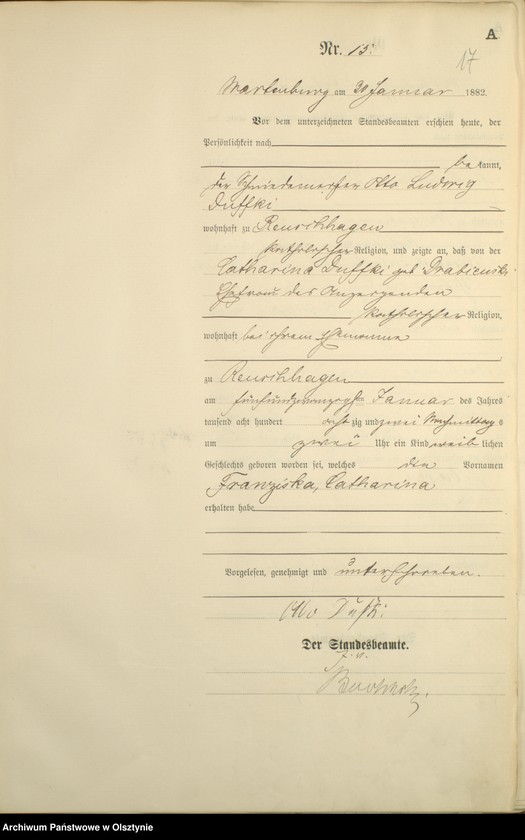 A
Nr. 15.
17
Wartenburg am 30 Januar 1882.
Vor dem unterzeichneten Standesbeamten erschien heute, der
Persönlichkeit nach
be kannt,
der Schmiedemeister Otto Ludwig
Duffki
wohnhaft zu Reuschhagen
katholischer Religion, und zeigte an, daß von der
Catharina Duffki geb
Ehefrau des Anzeigenden
katholischer Religion,
wohnhaft bei ihrem Ehemanne
zu Reuschhagen
am fünfundzwanzigsten Januar des Jahres
tausend acht hundert acht zig und zwei Nachmittags
um zwei Uhr ein Kind weib lichen
Geschlechts geboren worden sei, welches die Vornamen
Franziska, Catharina
erhalten habe
Vorgelesen, genehmigt und unterschrieben.
Otto Duffki
Der Standesbeamte.
Archiwum Państwowe w Olsztynie